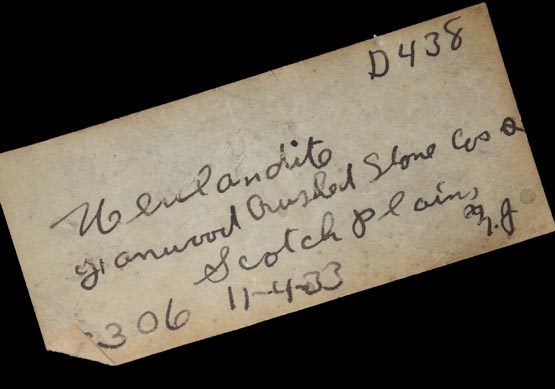 D438
Heulandite
Granwood Crushed Stone Cos Q
Scotch Plains
N.J
306 11-4-33